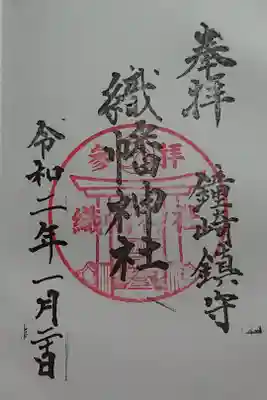 奉拝
鐘崎鎮守
織幡神社
令和二年一月二日
参拝